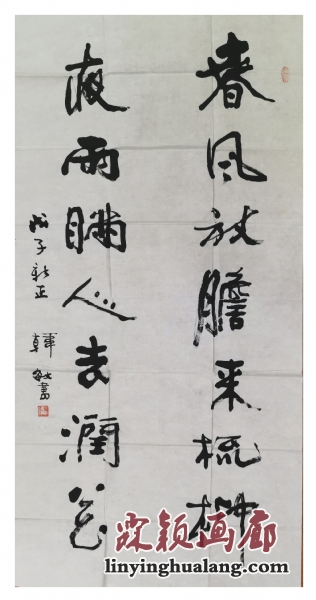 春风放胆来梳柳
夜雨瞒人去润花
戊子新正 韓敏書
霖颖画廊
linyinghualang.com